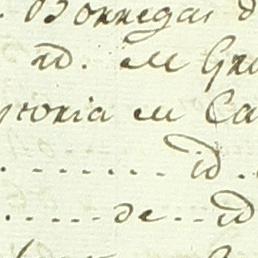 . Borregas d
id. en Gra
ytoria en Ca
. . . . . . . . id . .
. . . . . de . . id